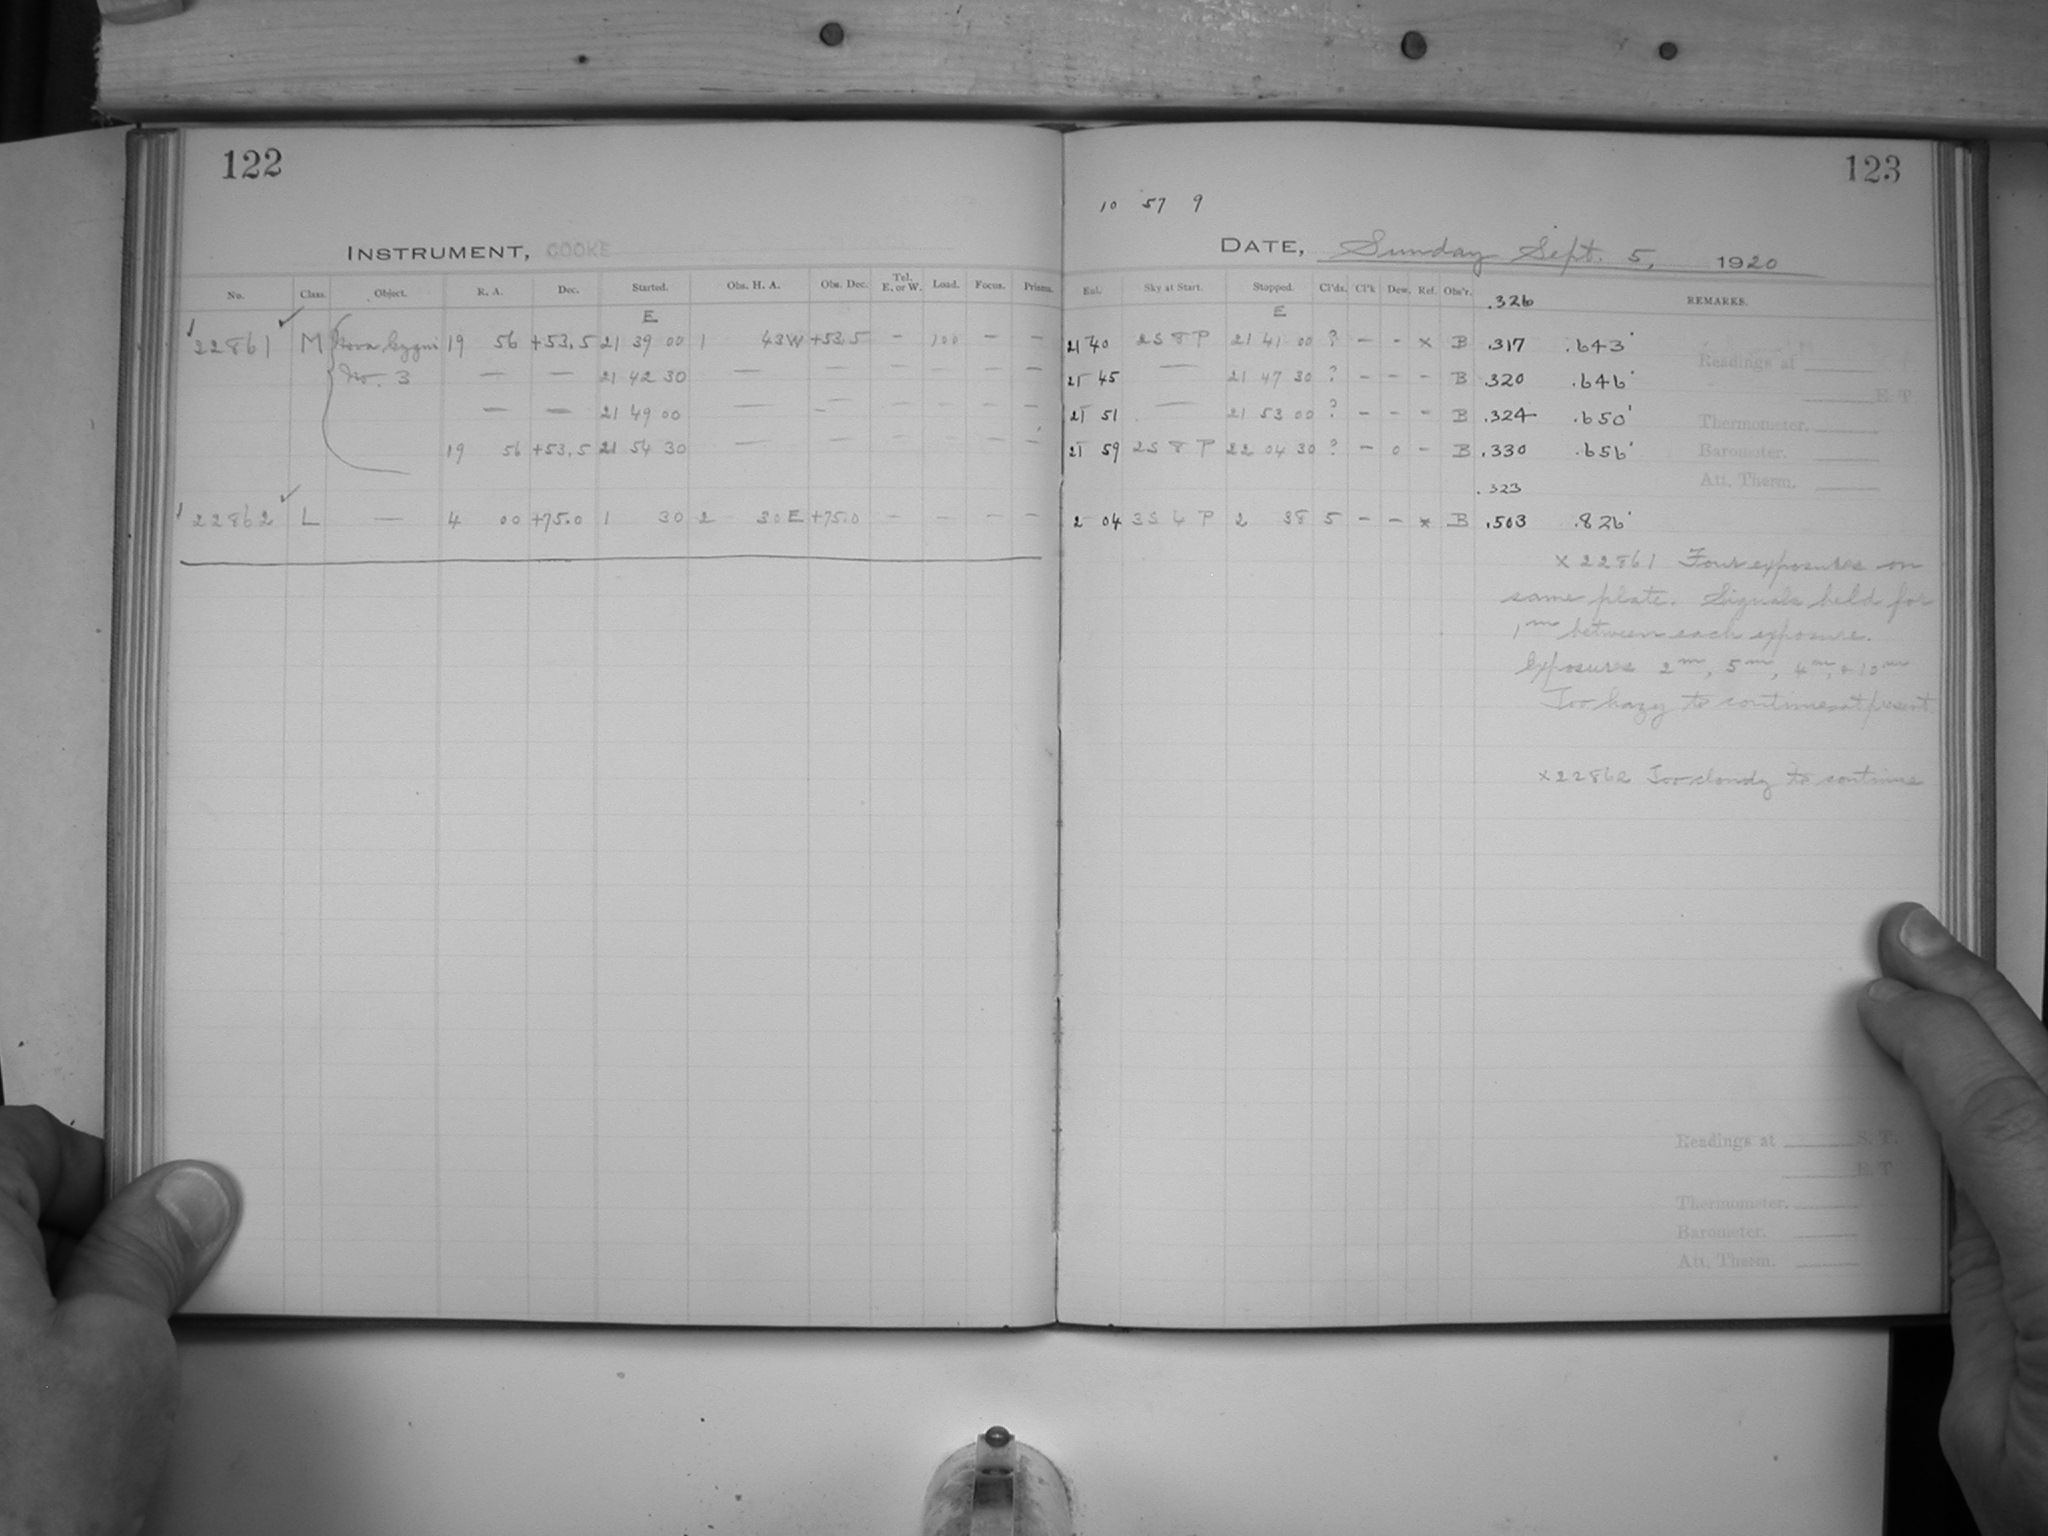 122
INSTRUMENT, COOKE
No. Class. Object. R. A. Dec. Started. Obs. H. A. Obs. Dec. Tel. E. or W. Load. Focus. Prisms.
E
22861 M Nova Cygni 19 56 +53.5 21 39 00 1 43W +53.5 – 100 – –
No. 3 — — 21 42 30 — — – – – –
— — 21 49 00 — — – – – –
19 56 +53.5 21 54 30 — — – – – –
22862 L — 4 00 +75.0 1 30 2 30 E +75.0 – – – –
123
10 57 9
DATE, Sunday Sept. 5, 1920
Sky at Start. Stopped. Cl'ds. Cl'k Dew. Ref. Obs'r. .326 REMARKS.
E
21 40 2S 8 P 21 41 00 ? – – x B .317 .643'
Readings at
21 45 — 21 47 30 ? – – – B .320 .646'
E. T
21 51 — 21 53 00 ? – – – B .324 .650'
Thermometer.
21 59 2S 8 P 22 04 30 ? – 0 – B .330 .656'
Barometer.
Att. Therm.
.323
2 04 3S 4 P 2 38 5 – – x B .503 .826'
x 22861 Four exposures on
same plate. Signals held for
1m between each exposure.
Exposures 2m, 5m, 4m, & 10m
Too hazy to continue at present.
x 22862 Too cloudy to continue
Readings at S. T.
E. T
Thermometer.
Barometer.
Att. Therm.